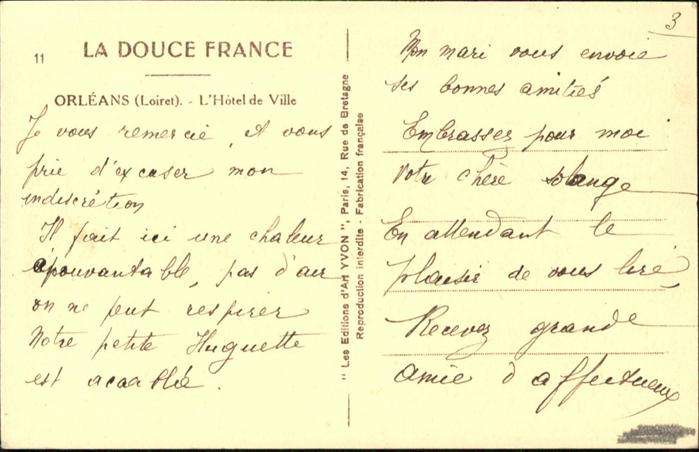 11
LA DOUCE FRANCE
ORLÉANS (Loiret). - L'Hôtel de Ville
Je vous remercie, et vous
prie d'excuser mon
indiscrétion
Il fait ici une chaleur
épouvantable, pas d'air
on ne peut respirer
Notre petite Huguette
est acablé.
" Les Editions d'Art YVON ". Paris, 14, Rue de Bretagne
Reproduction interdite - Fabrication française
3
Mon mari vous envoie
ses bonnes amitiés
Embrassez pour moi
votre chère Solange
En attendant le
plaisir de vous lire,
Recevez grande
amie d'affectueux